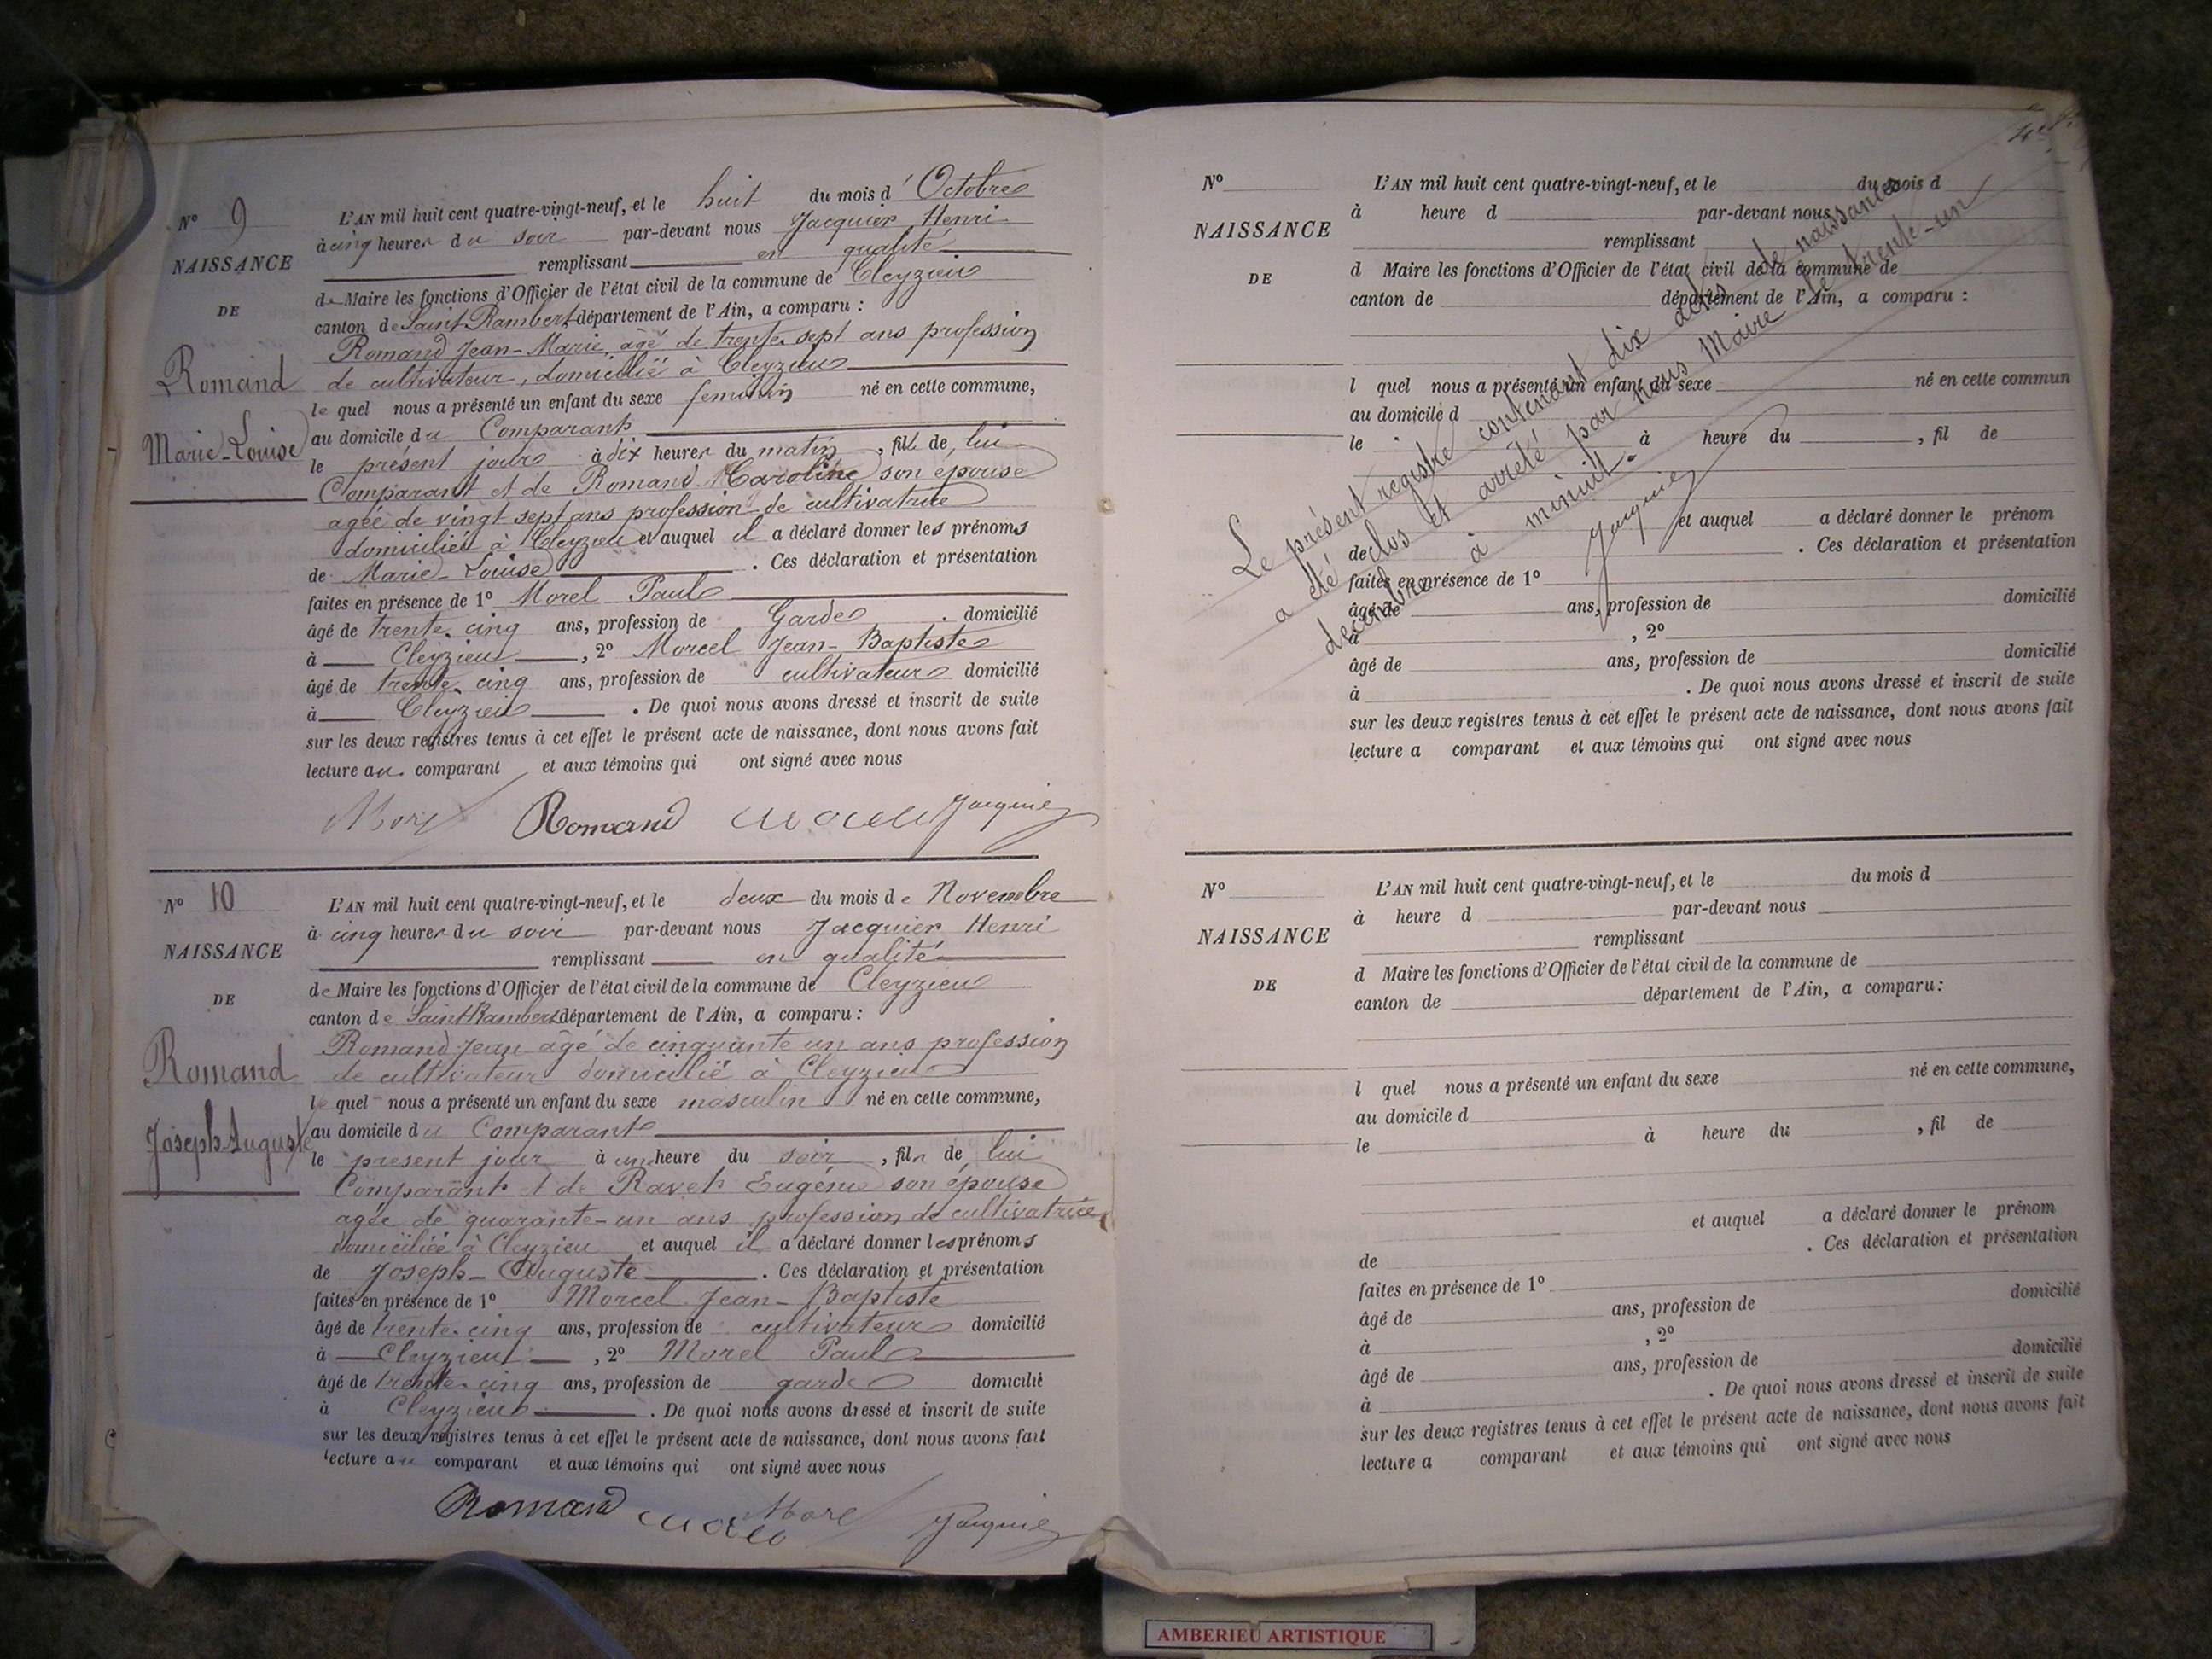 N° 9
NAISSANCE
DE
Romand
Marie-Louise
L'AN mil huit cent quatre-vingt-neuf, et le huit du mois d'Octobre
à cinq heures du soir par-devant nous Jacquier Henri
remplissant en qualité
de Maire les fonctions d'Officier de l'état civil de la commune de Cleyzieu
canton de Saint-Rambert département de l'Ain, a comparu :
Romand Jean-Marie, âgé de trente-sept ans profession
de cultivateur, domicilié à Cleyzieu
le quel nous a présenté un enfant du sexe feminin né en cette commune,
au domicile du Comparant
le présent jour à dix heures du matin, fille de lui
Comparant et de Romand Caroline son épouse
agée de vingt sept ans profession de cultivatrice
domiciliée à Cleyzieu et auquel il a déclaré donner les prénoms
de Marie-Louise. Ces déclaration et présentation
faites en présence de 1° Morel Paul
âgé de trente-cinq ans, profession de Garde domicilié
à Cleyzieu, 2° Morcel Jean-Baptiste
âgé de trente-cinq ans, profession de cultivateur domicilié
à Cleyzieu. De quoi nous avons dressé et inscrit de suite
sur les deux registres tenus à cet effet le présent acte de naissance, dont nous avons fait
lecture au comparant et aux témoins qui ont signé avec nous
Romand Jacquier
N° 10
NAISSANCE
DE
Romand
Joseph-Auguste
L'AN mil huit cent quatre-vingt-neuf, et le deux du mois de Novembre
à cinq heures du soir par-devant nous Jacquier Henri
remplissant en qualité
de Maire les fonctions d'Officier de l'état civil de la commune de Cleyzieu
canton de Saint-Rambert département de l'Ain, a comparu :
Romand Jean âgé de cinquante un ans profession
de cultivateur domicilié à Cleyzieu
le quel nous a présenté un enfant du sexe masculin né en cette commune,
au domicile du Comparant
le présent jour à une heure du soir, fils de lui
Comparant et de Ravet Eugénie son épouse
agée de quarante-un ans profession de cultivatrice
domiciliée à Cleyzieu et auquel il a déclaré donner les prénoms
de Joseph-Auguste. Ces déclaration et présentation
faites en présence de 1° Morcel Jean-Baptiste
âgé de trente-cinq ans, profession de cultivateur domicilié
à Cleyzieu, 2° Morel Paul
âgé de trente-cinq ans, profession de garde domicilié
à Cleyzieu. De quoi nous avons dressé et inscrit de suite
sur les deux registres tenus à cet effet le présent acte de naissance, dont nous avons fait
lecture au comparant et aux témoins qui ont signé avec nous
Romand Morel Jacquier
N°
NAISSANCE
DE
L'AN mil huit cent quatre-vingt-neuf, et le du mois d
à heure d par-devant nous
remplissant
d Maire les fonctions d'Officier de l'état civil de la commune de
canton de département de l'Ain, a comparu :
l quel nous a présenté un enfant du sexe né en cette commun
au domicile d
le à heure du , fil de
et auquel a déclaré donner le prénom
de . Ces déclaration et présentation
faites en présence de 1°
âgé de ans, profession de domicilié
à , 2°
âgé de ans, profession de domicilié
à . De quoi nous avons dressé et inscrit de suite
sur les deux registres tenus à cet effet le présent acte de naissance, dont nous avons fait
lecture a comparant et aux témoins qui ont signé avec nous
Le présent registre contenant dix actes de naissances
a été clos et arrêté par nous Maire le trente-un
décembre à minuit.
Jacquier
N°
NAISSANCE
DE
L'AN mil huit cent quatre-vingt-neuf, et le du mois d
à heure d par-devant nous
remplissant
d Maire les fonctions d'Officier de l'état civil de la commune de
canton de département de l'Ain, a comparu :
l quel nous a présenté un enfant du sexe né en cette commune,
au domicile d
le à heure du , fil de
et auquel a déclaré donner le prénom
de . Ces déclaration et présentation
faites en présence de 1°
âgé de ans, profession de domicilié
à , 2°
âgé de ans, profession de domicilié
à . De quoi nous avons dressé et inscrit de suite
sur les deux registres tenus à cet effet le présent acte de naissance, dont nous avons fait
lecture a comparant et aux témoins qui ont signé avec nous
AMBERIEU ARTISTIQUE